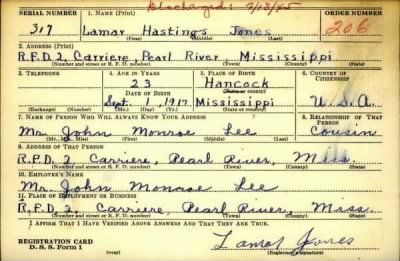 Discharged: 7/13/45
SERIAL NUMBER 1. NAME (Print) ORDER NUMBER
317 Lamar Hastings Jones 206
(First) (Middle) (Last)
2. ADDRESS (Print)
R.F.D. 2, Carriere, Pearl River Mississippi
(Number and street or R. F. D. number) (Town) (County) (State)
3. TELEPHONE 4. AGE IN YEARS 5. PLACE OF BIRTH 6. COUNTRY OF CITIZENSHIP
23 Hancock
(Town) (County)
DATE OF BIRTH
Sept. 1, 1917 Mississippi U.S.A.
(Exchange) (Number) (Mo.) (Day) (Yr.) (State or country)
7. NAME OF PERSON WHO WILL ALWAYS KNOW YOUR ADDRESS 8. RELATIONSHIP OF THAT PERSON
Mr. John Monroe Lee Cousin
(Mr., Mrs., Miss) (First) (Middle) (Last)
9. ADDRESS OF THAT PERSON
R.F.D. 2 Carriere, Pearl River, Miss.
(Number and street or R. F. D. number) (Town) (County) (State)
10. EMPLOYER'S NAME
Mr. John Monroe Lee
11. PLACE OF EMPLOYMENT OR BUSINESS
R.F.D. 2, Carriere, Pearl River, Miss.
(Number and street or R. F. D. number) (Town) (County) (State)
I AFFIRM THAT I HAVE VERIFIED ABOVE ANSWERS AND THAT THEY ARE TRUE.
REGISTRATION CARD
D. S. S. Form 1
Lamar Jones
(Registrant's signature)